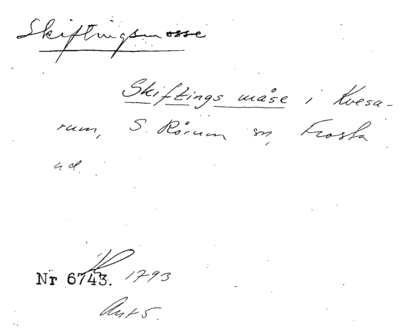 Skiftingsmosse
Skiftings måse i Kvesa-
rum, S. Rörum sn, Frosta
hd.
Nr 6743. 1793
Akt 5.